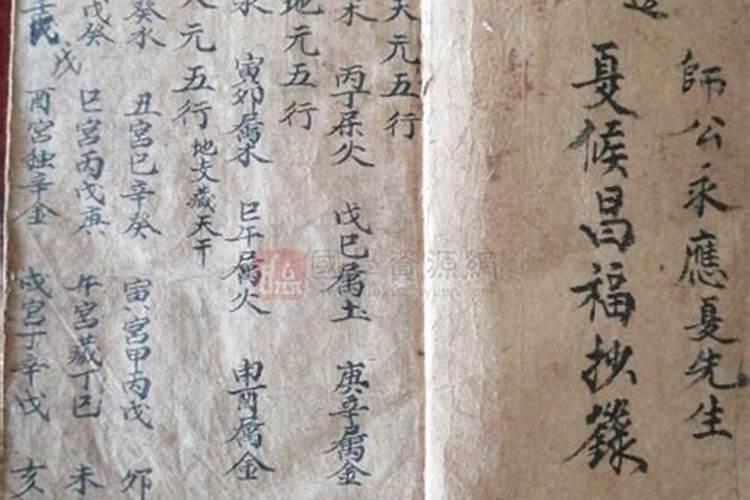 師公永應夏先生
夏候昌福抄錄
天元五行
木 丙丁属火 戊己属土 庚辛属金
地元五行
水 寅卯属木 巳午属火 申酉属金
元五行 地支藏天干
癸水 丑宮己辛癸 寅宮甲丙戊 卯
戊癸 巳宮丙戊庚 午宮藏丁己 未
戊
酉宮独辛金 戌宮丁辛戊 亥
國學資源網